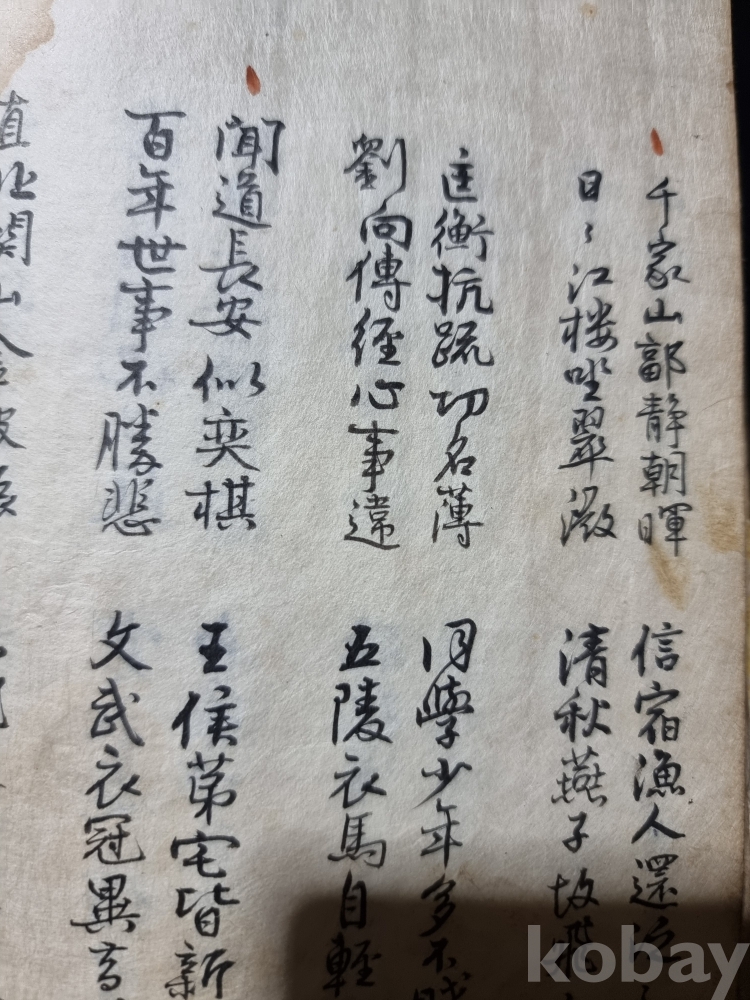 千家山郭静朝暉 信宿漁人還泛
日〻江楼坐翠微 清秋燕子故飛
匡衡抗疏功名薄 同學少年多不賤
劉向傳經心事違 五陵衣馬自輕
聞道長安似奕棋 王侯第宅皆新
百年世事不勝悲 文武衣冠異昔
直北関山金
kobay